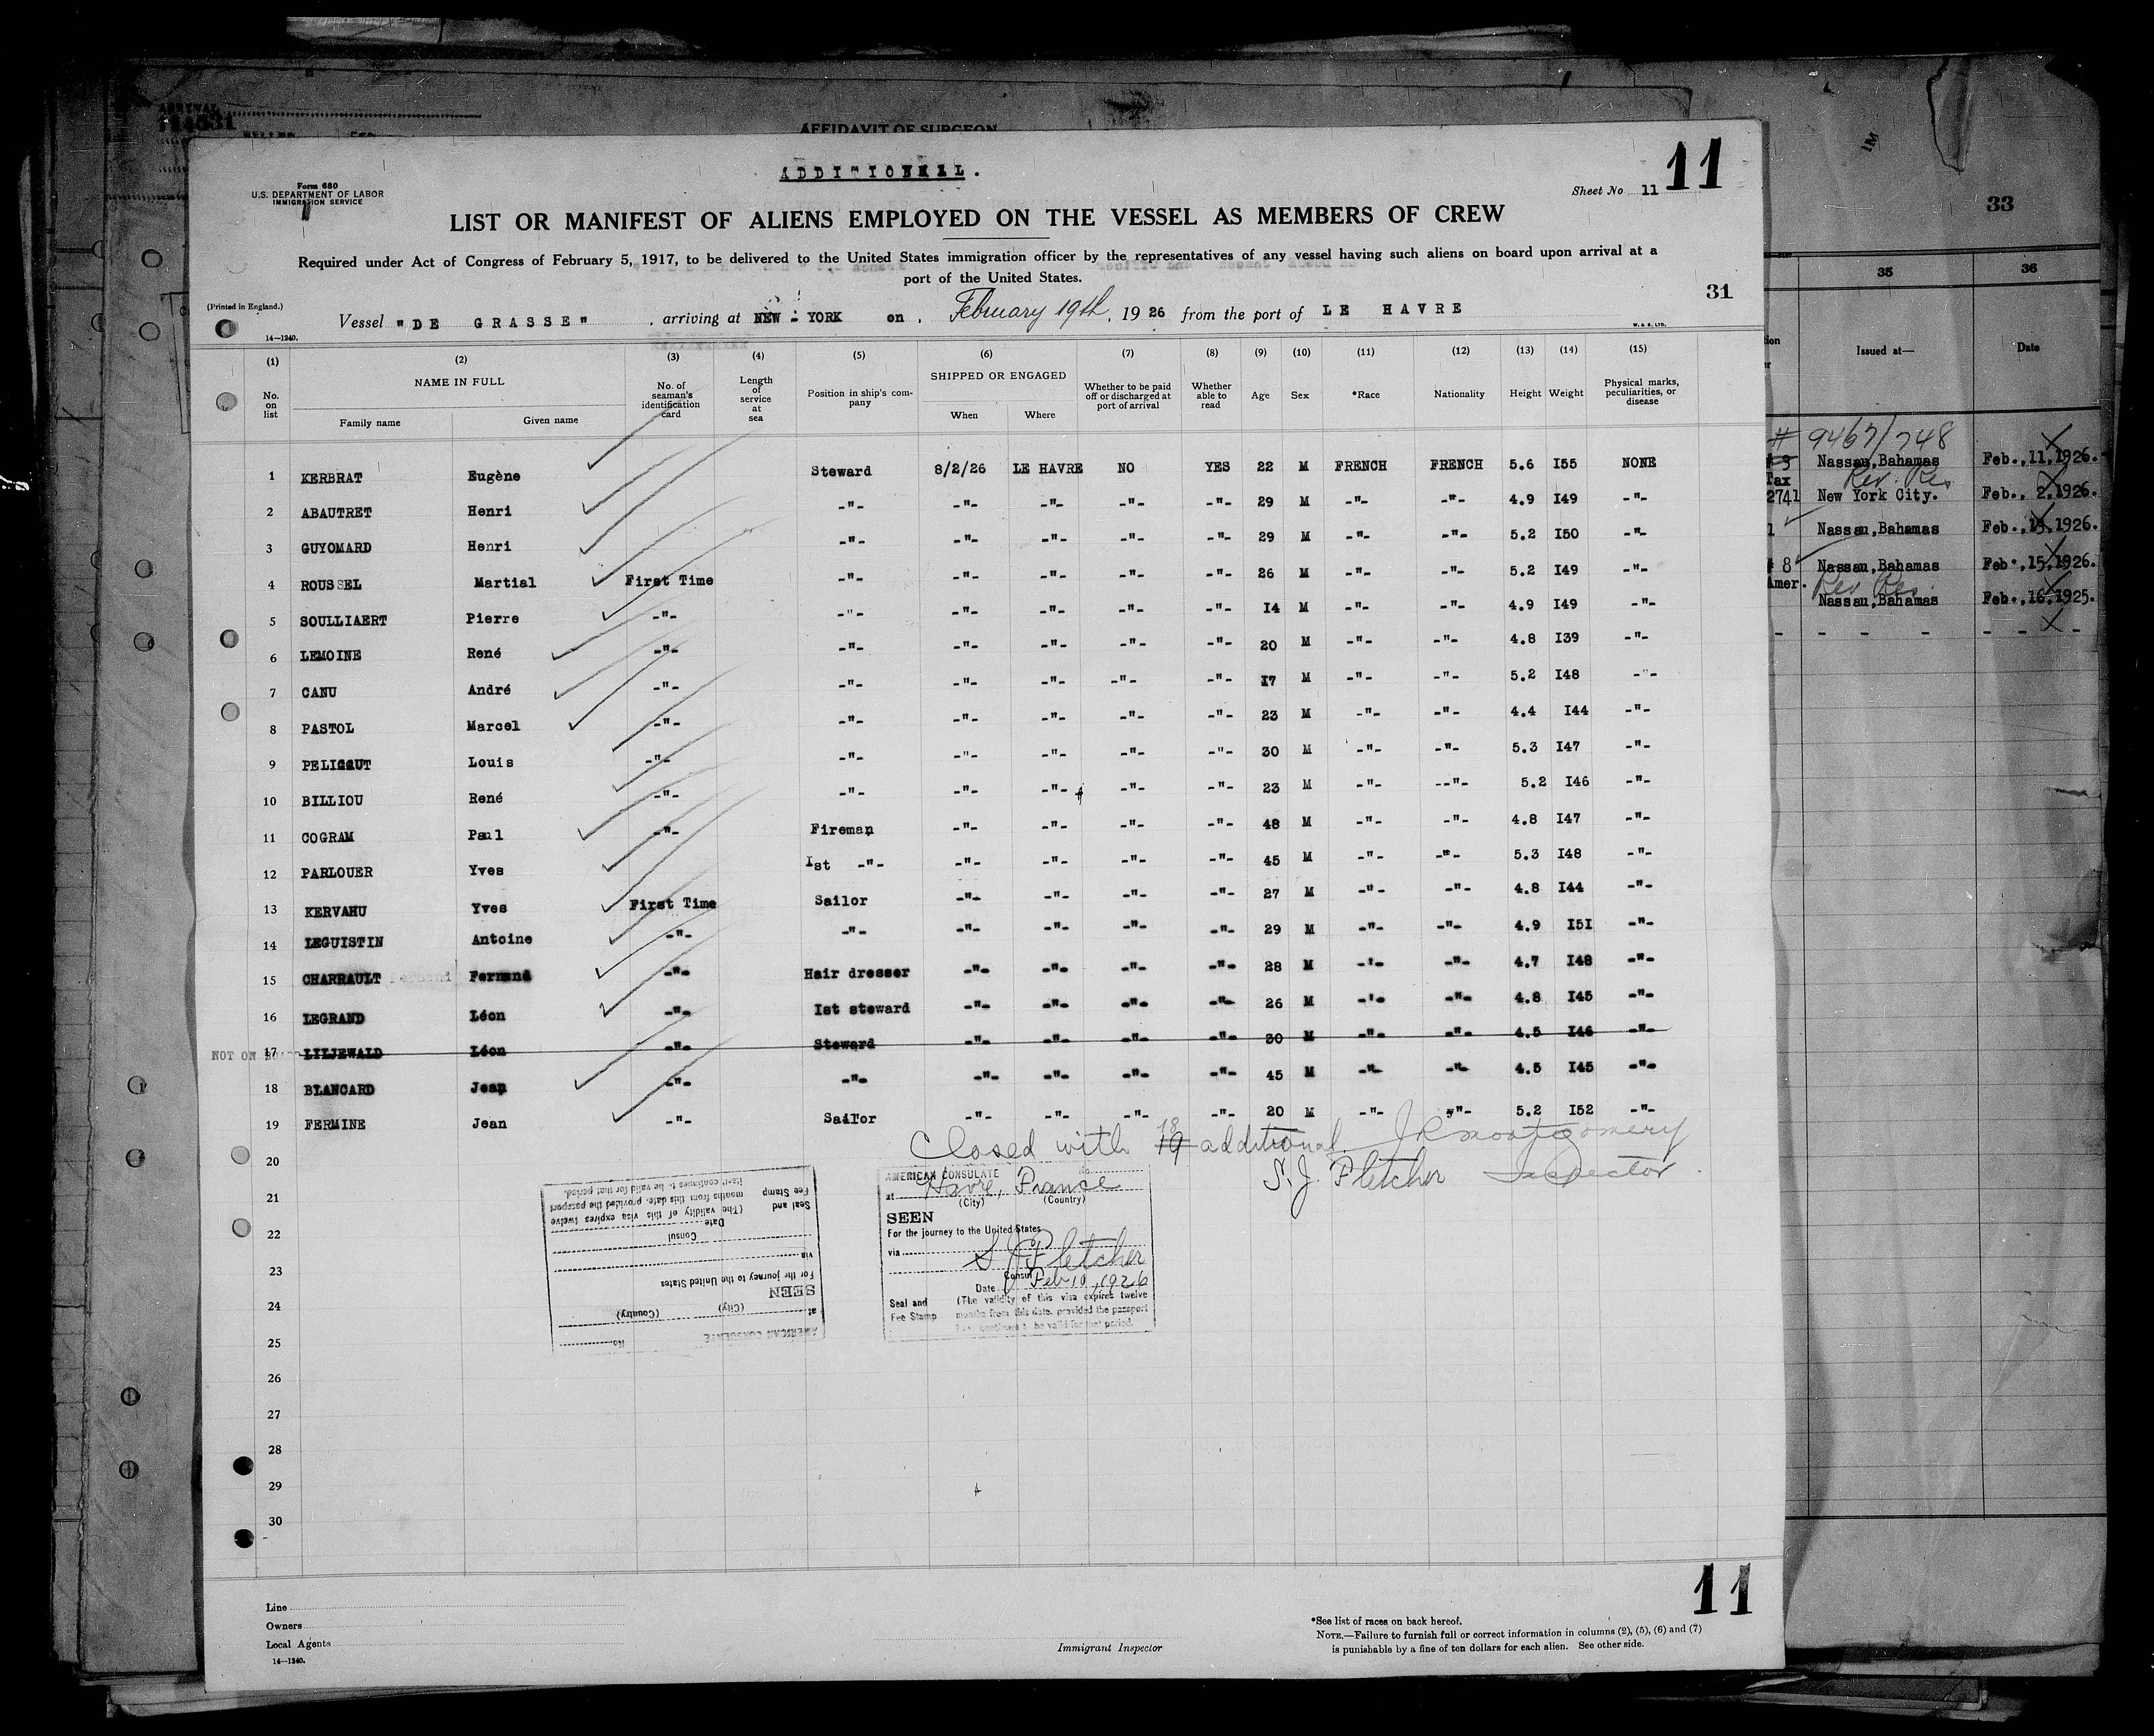 AFFIDAVIT OF SURGEON
ADDITIONEL.
11
Form 680
U.S. DEPARTMENT OF LABOR
IMMIGRATION SERVICE
Sheet No 11
LIST OR MANIFEST OF ALIENS EMPLOYED ON THE VESSEL AS MEMBERS OF CREW
Required under Act of Congress of February 5, 1917, to be delivered to the United States immigration officer by the representatives of any vessel having such aliens on board upon arrival at a
port of the United States.
31
(Printed in England.)
Vessel "DE GRASSE", arriving at NEW-YORK on, February 19th, 1926 from the port of LE HAVRE
14—1240.
W. & S. LTD.
(1) (2) (3) (4) (5) (6) (7) (8) (9) (10) (11) (12) (13) (14) (15)
No. on list NAME IN FULL No. of seaman's identification card Length of service at sea Position in ship's company SHIPPED OR ENGAGED Whether to be paid off or discharged at port of arrival Whether able to read Age Sex *Race Nationality Height Weight Physical marks, peculiarities, or disease
Family name Given name When Where
1 KERBRAT Eugène Steward 8/2/26 LE HAVRE NO YES 22 M FRENCH FRENCH 5.6 I55 NONE
2 ABAUTRET Henri -"- -"- -"- -"- -"- 29 M -"- -"- 4.9 I49 -"-
3 GUYOMARD Henri -"- -"- -"- -"- -"- 29 M -"- -"- 5.2 I50 -"-
4 ROUSSEL Martial First Time -"- -"- -"- -"- -"- 26 M -"- -"- 5.2 I49 -"-
5 SOULLIAERT Pierre -"- -"- -"- -"- -"- -"- I4 M -"- -"- 4.9 I49 -"-
6 LEMOINE René -"- -"- -"- -"- -"- -"- 20 M -"- -"- 4.8 I39 -"-
7 CANU André -"- -"- -"- -"- -"- -"- I7 M -"- -"- 5.2 I48 -"-
8 PASTOL Marcel -"- -"- -"- -"- -"- -"- 23 M -"- -"- 4.4 I44 -"-
9 Louis -"- -"- -"- -"- -"- -"- 30 M -"- -"- 5.3 I47 -"-
10 BILLIOU René -"- -"- -"- -"- -"- -"- 23 M -"- --"- 5.2 I46 -"-
11 COGRAM Paul -"- Fireman -"- -"- -"- -"- 48 M -"- -"- 4.8 I47 -"-
12 PARLOUER Yves Ist -"- -"- -"- -"- -"- 45 M -"- -"- 5.3 I48 -"-
13 KERVAHU Yves First Time Sailor -"- -"- -"- -"- 27 M -"- -"- 4.8 I44 -"-
14 LEGUISTIN Antoine -"- -"- -"- -"- -"- -"- 29 M -"- -"- 4.9 I5I -"-
15 CHARRAULT Fernand -"- Hair dresser -"- -"- -"- -"- 28 M -'- -"- 4.7 I48 -"-
16 LEGRAND Léon -"- Ist steward -"- -"- -"- -"- 26 M -'- -"- 4.8 I45 -"-
NOT ON BOARD 17 LILJEWALD Léon -"- Steward -"- -"- -"- -"- 30 M -"- -"- 4.5 I46 -"-
18 BLANCARD Jean -"- -"- -"- -"- -"- -"- 45 M -"- -"- 4.5 I45 -"-
19 FERMINE Jean -"- Sailor -"- -"- -"- -"- 20 M -"- -"- 5.2 I52 -"-
Closed with 19 18 additional. J R Montgomery
S. J. Fletcher Inspector
20
21
22
23
24
25
26
27
28
29
30
AMERICAN CONSULATE No.
at Havre, France
(City) (Country)
SEEN
For the journey to the United States
via
S J Fletcher
Consul
Date Feb 10, 1926
Seal and Fee Stamp (The validity of this visa expires twelve
months from this date, provided the passport
continues to be valid for that period.
AMERICAN CONSULATE No.
at
(City) (Country)
SEEN
For the journey to the United States
via
Consul
Date
Seal and Fee Stamp (The validity of this visa expires twelve
months from this date, provided the passport
continues to be valid for that period.
11
Line
Owners
Local Agents
14—1240.
Immigrant Inspector
*See list of races on back hereof.
NOTE.—Failure to furnish full or correct information in columns (2), (5), (6) and (7)
is punishable by a fine of ten dollars for each alien. See other side.
33
35 36
Issued at— Date
# 9467/748
Nassau,Bahamas Feb.,11,1926.
Rev. Res
2741 New York City. Feb., 2,1926.
1 Nassau,Bahamas Feb.,15,1926.
# 8 Nassau,Bahamas Feb.,15,1926.
Amer. Rev Res
Nassau,Bahamas Feb.,16,1925.